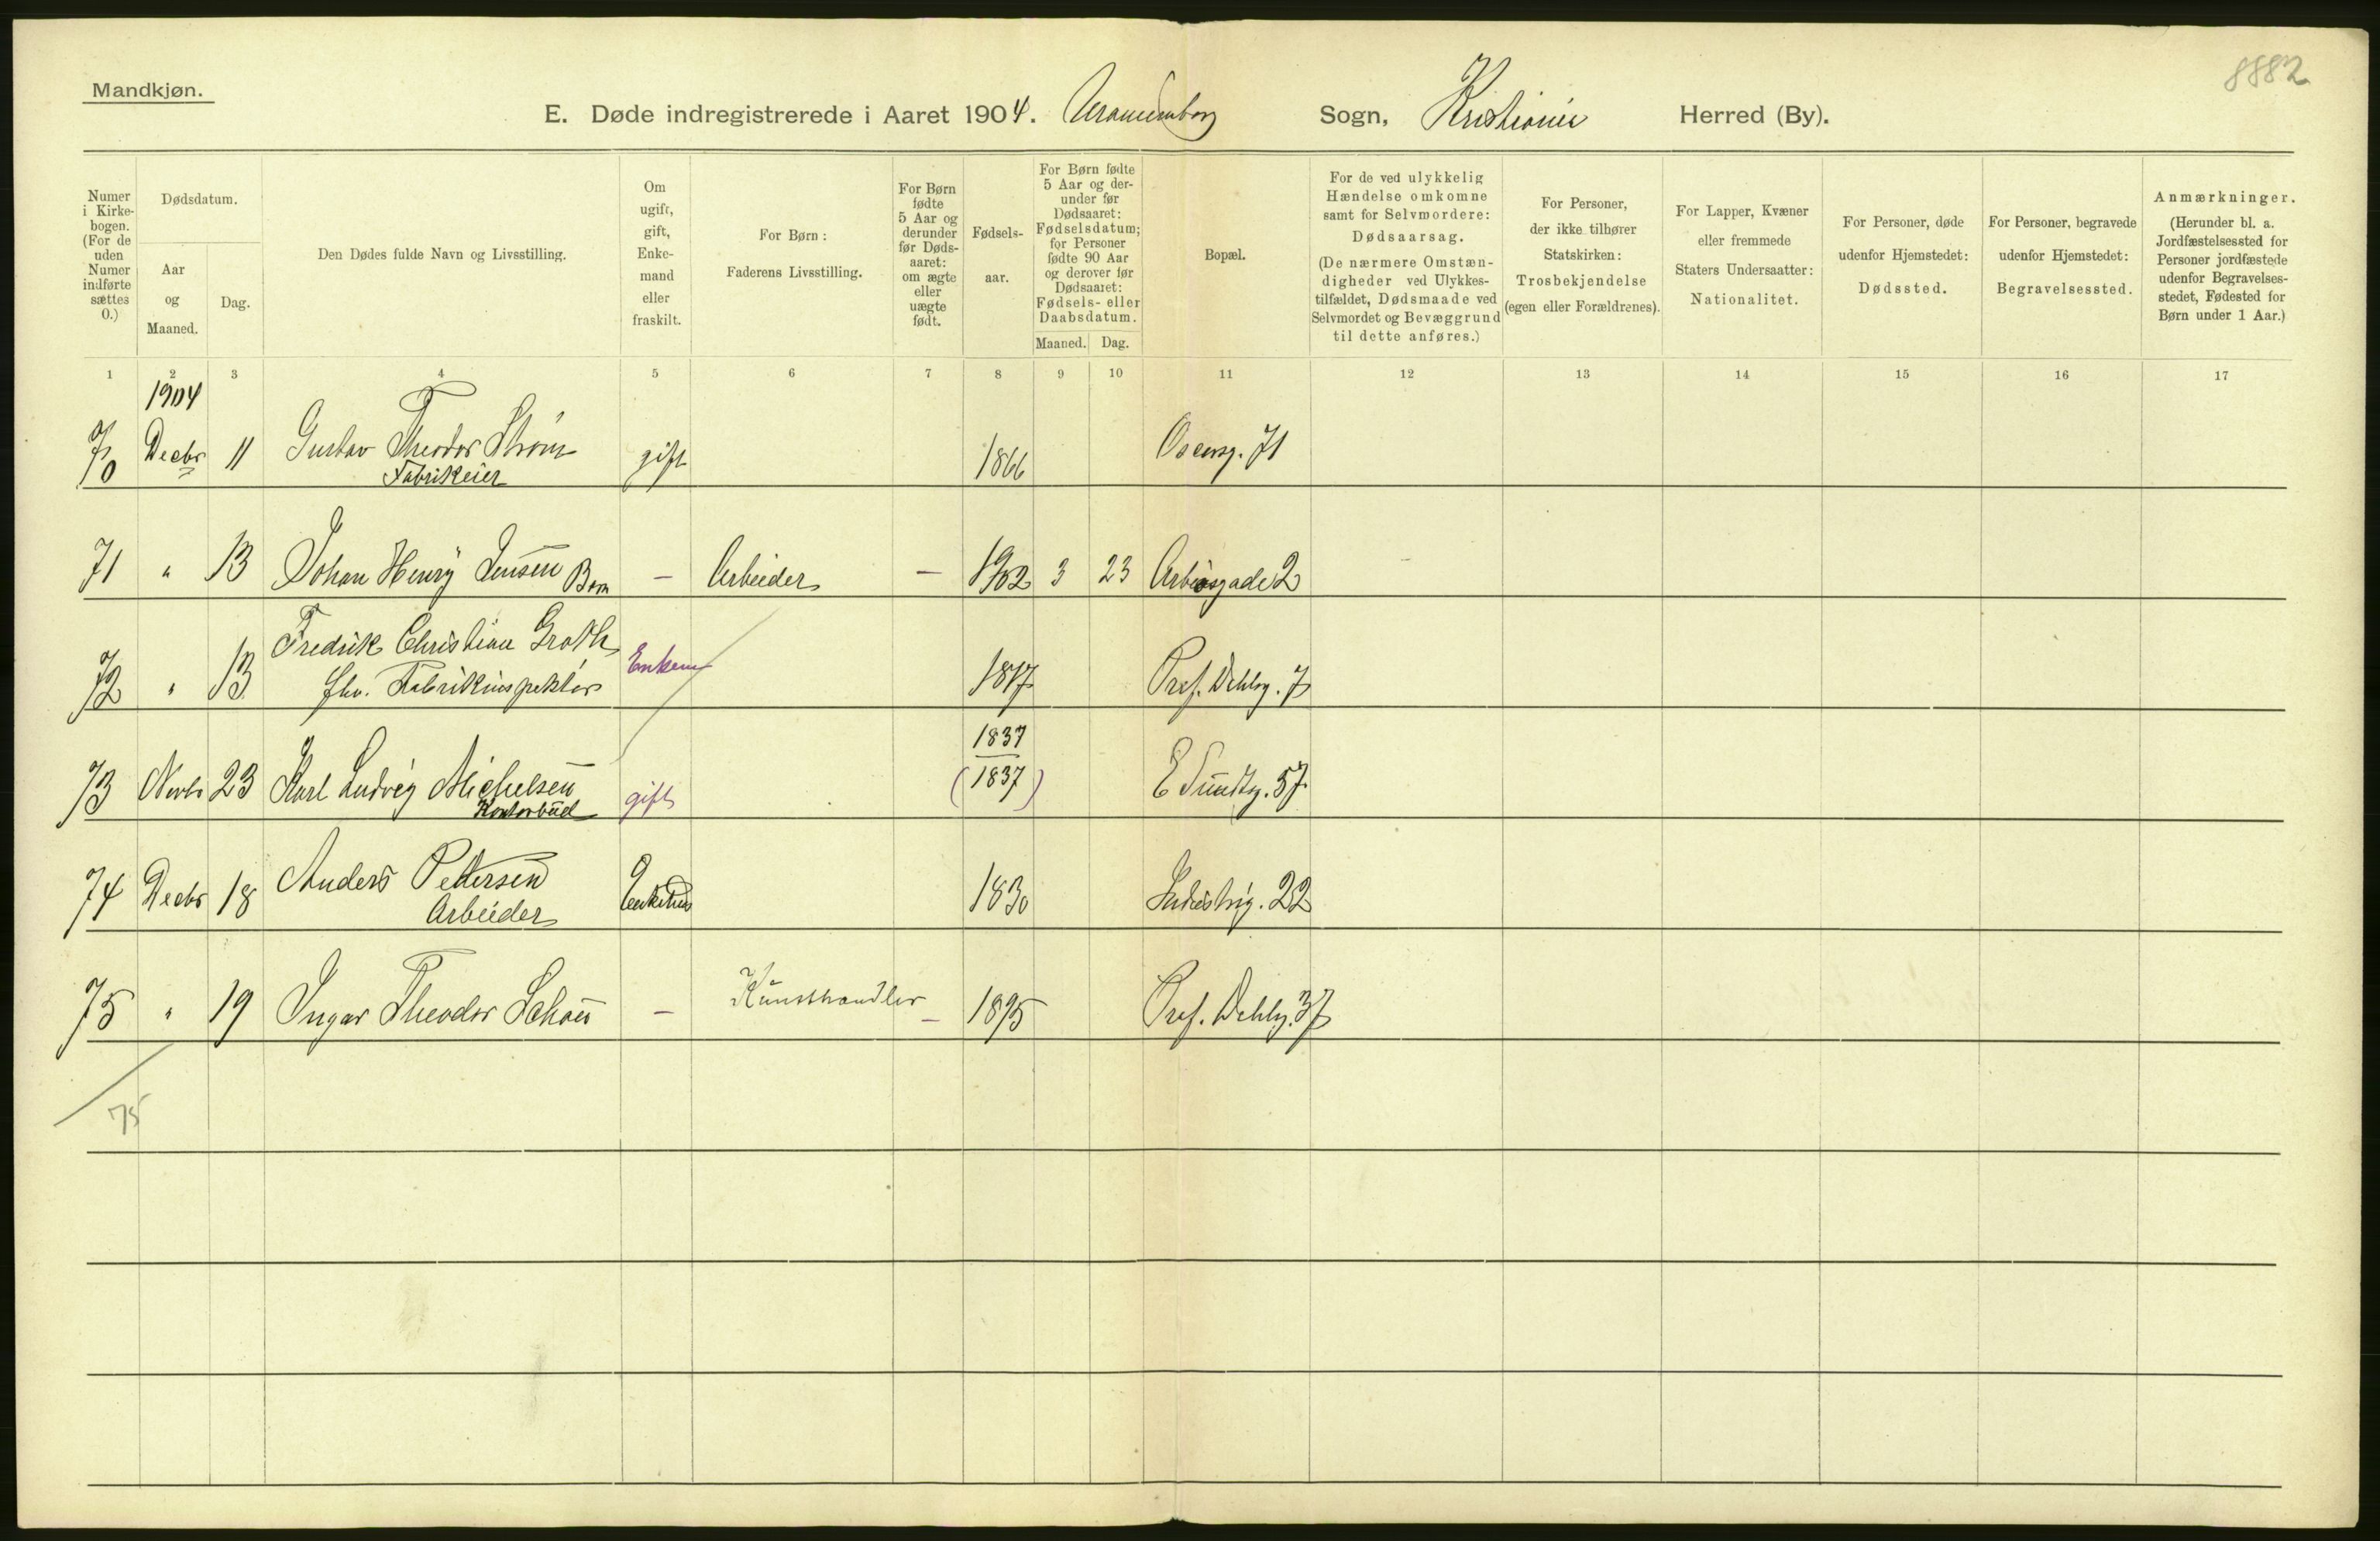 Mandkjøn.
8882
E. Døde indregistrerede i Aaret 1904. Uranienborg Sogn, Kristiania Herred (By).
Numer i Kirke-bogen. (For de uden Numer indførte sættes 0.)
Dødsdatum.
Aar og Maaned.
Dag.
Den Dødes fulde Navn og Livsstilling.
Om ugift, gift, Enke-mand eller fraskilt.
For Børn: Faderens Livsstilling.
For Børn fødte 5 Aar og derunder før Døds-aaret: om ægte eller uægte født.
Fødsels-aar.
For Børn fødte 5 Aar og der-under før Dødsaaret: Fødselsdatum; for Personer fødte 90 Aar og derover før Dødsaaret: Fødsels- eller Daabsdatum.
Maaned. Dag.
Bopæl.
For de ved ulykkelig Hændelse omkomne samt for Selvmordere: Dødsaarsag. (De nærmere Omstæn-digheder ved Ulykkes-tilfældet, Dødsmaade ved Selvmordet og Bevæggrund til dette anføres.)
For Personer, der ikke tilhører Statskirken: Trosbekjendelse (egen eller Forældrenes).
For Lapper, Kvæner eller fremmede Staters Undersaatter: Nationalitet.
For Personer, døde udenfor Hjemstedet: Dødssted.
For Personer, begravede udenfor Hjemstedet: Begravelsessted.
Anmærkninger. (Herunder bl. a. Jordfæstelsessted for Personer jordfæstede udenfor Begravelses-stedet, Fødested for Børn under 1 Aar.)
1 2 3 4 5 6 7 8 9 10 11 12 13 14 15 16 17
1904
70 Decbr 11 Gustav Theodor Strøm gift 1866 Oscarsg. 71
Fabrikeier
71 " 13 Johan Henry Jensen Barn — Arbeider — 1902 3 23 Arbinsgade 2
Fredrik Christian Groth
72 " 13 fhv. Fabrikinspektør Enkem 1817 Prof. Dahlsg. 7
1837
73 Novbr 23 Karl Ludvig Michelsen gift (1837) E Sundtsg. 57
Kontorbud
74 Decbr 18 Anders Pettersen 1830 Industrig. 22
Arbeider
75 " 19 Ingar Theodor Schou — Kunsthandler — 1895 Prof. Dahlsg. 37
75